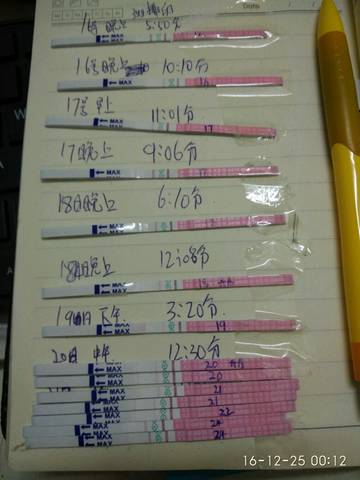 Date
16号 晚上 5:00分
← MAX
16号晚上 10:10分
← MAX 16
17号早上 11:01分
← MAX 17
17晚上 9:06分
← MAX 17
18日晚上 6:10分
← MAX
18日晚上 12:08分
← MAX
19日下午 3:20分
← MAX 19
20日 中午 12:30分
← MAX 20
← MAX 20
← MAX 21
← MAX 21
← MAX 22
← MAX 24
← MAX 24
16-12-25 00:12